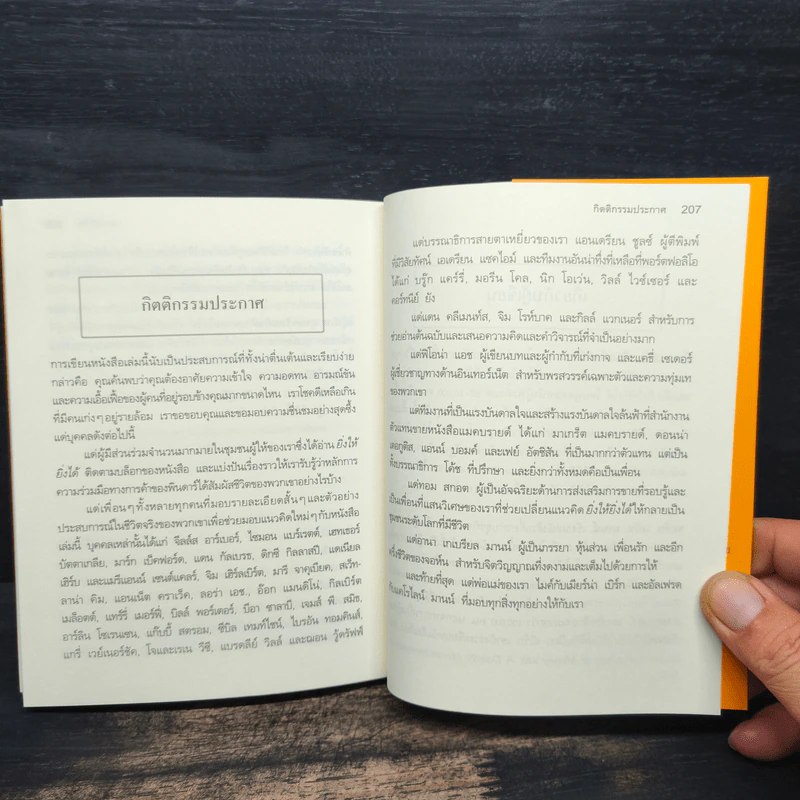 กิตติกรรมประกาศ
การเขียนหนังสือเล่มนี้นับเป็นประสบการณ์ที่ทั้งน่าตื่นเต้นและเรียบง่าย
กล่าวคือ คุณค้นพบว่าคุณต้องอาศัยความเข้าใจ ความอดทน อารมณ์ขัน
และความเอื้อเฟื้อของผู้คนที่อยู่รอบข้างคุณมากขนาดไหน เราโชคดีเหลือเกิน
ที่มีคนเก่งๆ อยู่รายล้อม เราขอขอบคุณและขอมอบความชื่นชมอย่างสุดซึ้ง
แด่บุคคลดังต่อไปนี้
แด่ผู้มีส่วนร่วมจำนวนมากมายในชุมชนผู้ให้ของเราซึ่งได้อ่าน ยิ่งให้
ยิ่งได้ ติดตามบล็อกของหนังสือ และแบ่งปันเรื่องราวให้เรารับรู้ว่าหลักการ
ความร่วมมือทางการค้าของพินดาร์ได้สัมผัสชีวิตของพวกเขาอย่างไรบ้าง
แด่เพื่อนๆ ทั้งหลายทุกคนที่มอบรายละเอียดสั้นๆ และตัวอย่าง
ประสบการณ์ในชีวิตจริงของพวกเขาเพื่อช่วยมอบแนวคิดใหม่ๆ กับหนังสือ
เล่มนี้ บุคคลเหล่านั้นได้แก่ จีลส์ส อาร์เบอร์, ไซมอน แบร์เรตต์, เฮทเธอร์
บัตตาเกลีย, มาร์ก เบ็ดฟอร์ด, แดน กัลเบรธ, ดิกซี กิลลาสปี, แดเนียล
เฮิร์บ และแมรีแอนน์ เซนต์แคลร์, จิม เฮิร์ลเบิร์ต, มารี จาคูเบียค, สเว็ท-
ลาน่า คิม, แอนเน็ต คราเว็ค, ลอร่า เอช., อ๊อก แมนดิโน่, กิลเบิร์ต
เมล็อตต์, แทร์รี่ เมอร์ฟี่, บิลล์ พอร์เตอร์, บีอา ซาลาบี, เจมส์ พี. สมิธ,
อาร์ลิน โซเรนเซน, แก๊บบี้ สตรอม, ซีบิล เทมท์ไชน์, ไบรอัน ทอมคินส์,
แกรี่ เวย์เนอร์ชัค, โจและเรเน วีซี, แบรดลีย์ วิลล์ และฌอน วู้ดรัฟฟ์
กิตติกรรมประกาศ 207
แด่บรรณาธิการสายตาเหยี่ยวของเรา แอนเดรียน ชูลซ์ ผู้ตีพิมพ์
ที่มีวิสัยทัศน์ เอเดรียน แซคไฮม์ และทีมงานอันน่าทึ่งที่เหลือที่พอร์ตฟอลิโอ
ได้แก่ บรู๊ก แคร์รี่, มอรีน โคล, นิก โอเว่น, วิลล์ ไวซ์เซอร์ และ
คอร์ทนีย์ ยัง
แด่แดน คลีเมนท์ส, จิม โรห์บาค และกิลล์ แวกเนอร์ สำหรับการ
ช่วยอ่านต้นฉบับและเสนอความคิดและคำวิจารณ์ที่จำเป็นอย่างมาก
แด่ฟิโอน่า แอช ผู้เขียนบทและผู้กำกับที่เก่งกาจ และแคธี่ เซเดอร์
ผู้เชี่ยวชาญทางด้านอินเทอร์เน็ต สำหรับพรสวรรค์เฉพาะตัวและความทุ่มเท
ของพวกเขา
แด่ทีมงานที่เป็นแรงบันดาลใจและสร้างแรงบันดาลใจล้นฟ้าที่สำนักงาน
ตัวแทนขายหนังสือแมคบรายด์ ได้แก่ มาเกร็ต แมคบรายด์, ดอนน่า
เดอกูติส, แอนน์ บอมค์ และเฟย์ อัตชิสัน ที่เป็นมากกว่าตัวแทน แต่เป็น
ทั้งบรรณาธิการ โค้ช ที่ปรึกษา และยิ่งกว่าทั้งหมดคือเป็นเพื่อน
แด่ทอม สกอต ผู้เป็นอัจฉริยะด้านการส่งเสริมการขายที่รอบรู้และ
เป็นเพื่อนที่แสนวิเศษของเราที่ช่วยเปลี่ยนแนวคิด ยิ่งให้ยิ่งได้ ให้กลายเป็น
ชุมชนระดับโลกที่มีชีวิต
แด่อานา เกเบรียล มานน์ ผู้เป็นภรรยา หุ้นส่วน เพื่อนรัก และอีก
ครึ่งชีวิตของจอห์น สำหรับจิตวิญญาณที่งดงามและเต็มไปด้วยการให้
และท้ายที่สุด แด่พ่อแม่ของเรา ไมค์กับเมียร์น่า เบิร์ก และอัลเฟรด
กับแคโรไลน์ มานน์ ที่มอบทุกสิ่งทุกอย่างให้กับเรา